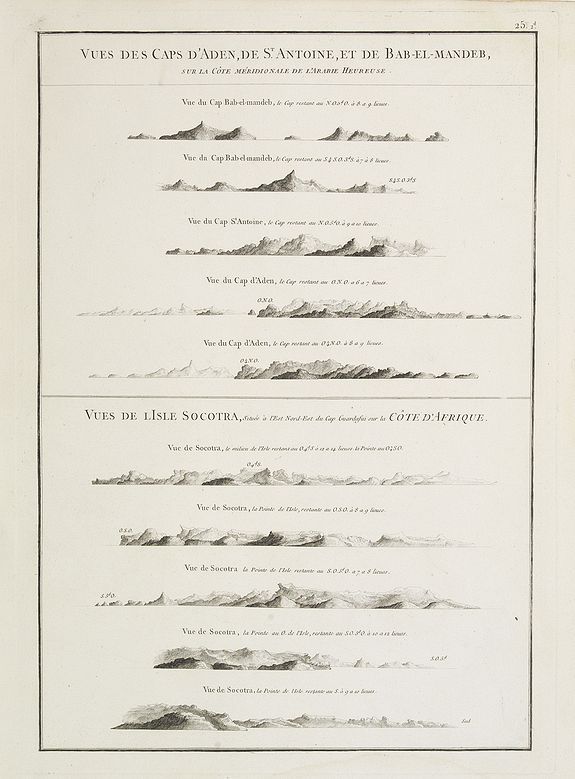 25. 1ª
VUES DES CAPS D'ADEN, DE Sᵀ ANTOINE, ET DE BAB-EL-MANDEB,
SUR LA CÔTE MÉRIDIONALE DE L'ARABIE HEUREUSE.
Vue du Cap Bab-el-mandeb, le Cap restant au N.O.¼O. à 8 a 9 lieues.
Vue du Cap Bab-el-mandeb, le Cap restant au S¼S.O.3ᵈS. à 7 à 8 lieues.
S¼S.O.3ᵈS.
Vue du Cap Sᵗ Antoine, le Cap restant au N.O.5ᵈO. à 9 a 10 lieues.
Vue du Cap d'Aden, le Cap restant au O.N.O. a 6 a 7 lieues.
O.N.O.
Vue du Cap d'Aden, le Cap restant au O¼N.O. à 8 a 9 lieues.
O¼N.O.
VUES DE L'ISLE SOCOTRA, Située à l'Est Nord-Est du Cap Guardafui sur la CÔTE D'AFRIQUE.
Vue de Socotra, le milieu de l'Isle restant au O.4ᵈS à 12 a 14 lieues la Pointe au O¼SO.
O.4ᵈS.
Vue de Socotra, la Pointe de l'Isle, restante au O.S.O. à 8 a 9 lieues.
O.S.O.
Vue de Socotra la Pointe de l'Isle restante au S.O.5ᵈO. a 7 a 8 lieues.
Vue de Socotra, la Pointe au O. de l'Isle, restante au S.O.5ᵈO. à 10 a 12 lieues.
Vue de Socotra, la Pointe de l'Isle restante au S. à 9 a 10 lieues.
Sud